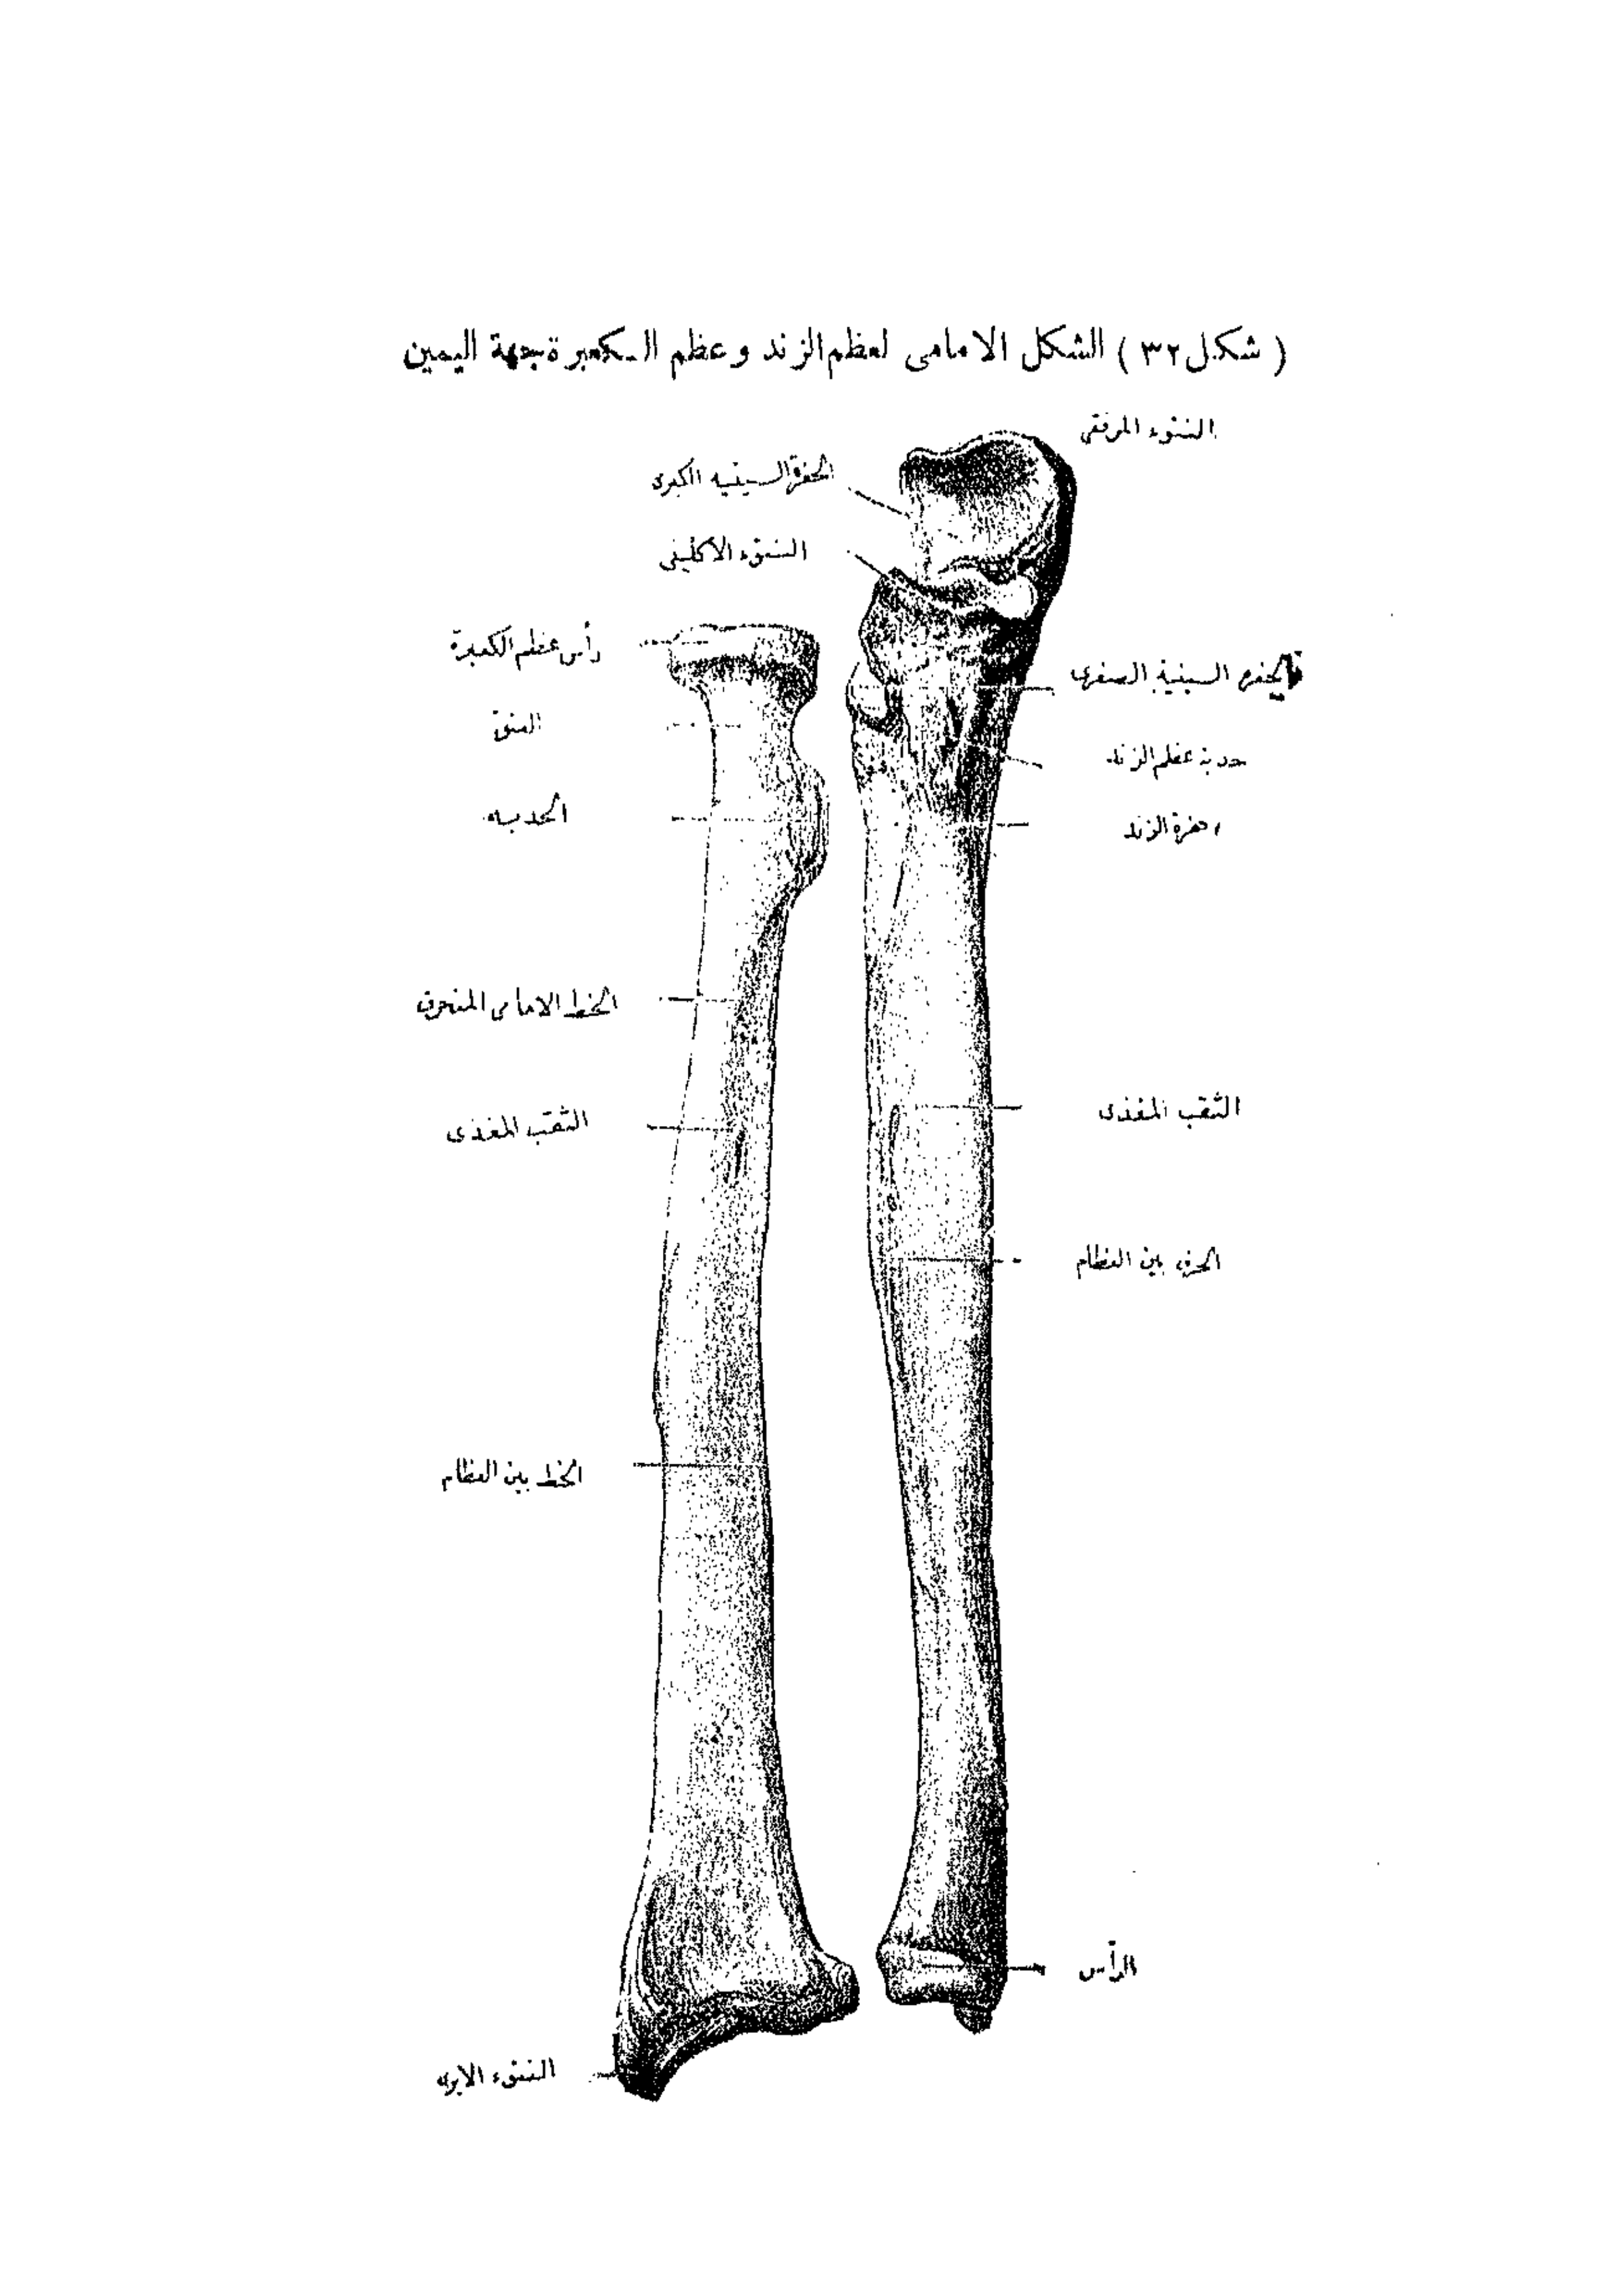 ( شكل ٣٢ ) الشكل الامامى لعظم الزند وعظم الكعبرة جهة اليمين
النتوء المرفقى
الحفرة السينيه الكبرى
النتوء الاكليلى
رأس عظم الكعبرة
الحفره السينية الصغرى
العنق
حدبة عظم الزند
الحدبه
حفرة الزند
الخط الامامى المنحرف
الثقب المغذى
الثقب المغذى
الحرف بين العظام
الخط بين العظام
الرأس
النتوء الابرى